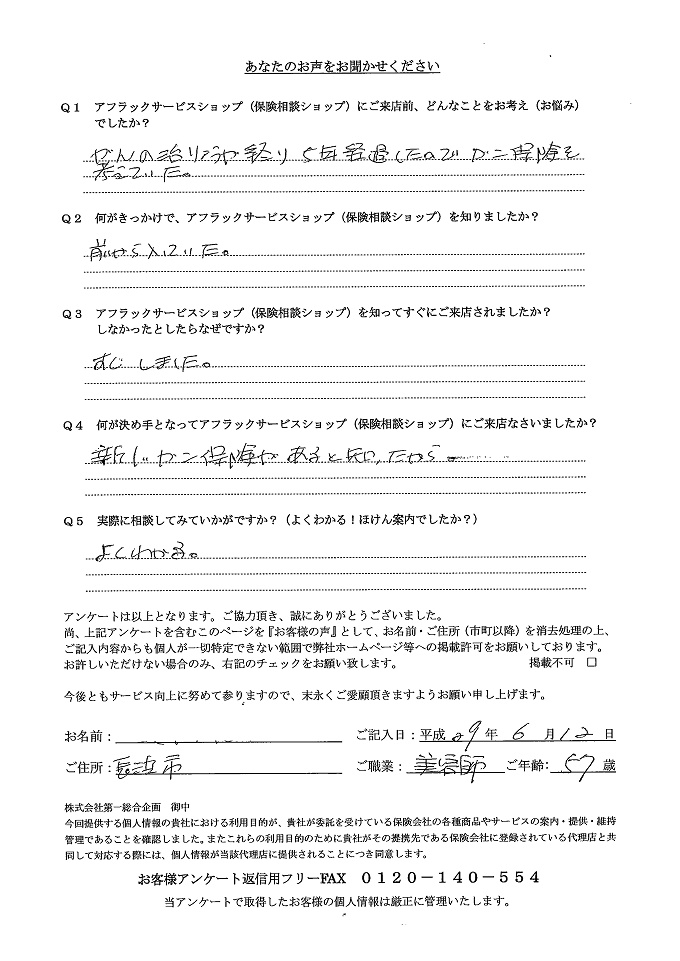 あなたのお声をお聞かせください
Q1 アフラックサービスショップ（保険相談ショップ）にご来店前、どんなことをお考え（お悩み）
でしたか？
がんの治りょうが終り 5年経過したので がん保険を
考えていた。
Q2 何がきっかけで、アフラックサービスショップ（保険相談ショップ）を知りましたか？
前から入っていた。
Q3 アフラックサービスショップ（保険相談ショップ）を知ってすぐにご来店されましたか？
しなかったとしたらなぜですか？
すぐ しました。
Q4 何が決め手となってアフラックサービスショップ（保険相談ショップ）にご来店なさいましたか？
新しいガン保険が あると知ったから
Q5 実際に相談してみていかがですか？（よくわかる！ほけん案内でしたか？）
よくわかる。
アンケートは以上となります。ご協力頂き、誠にありがとうございました。
尚、上記アンケートを含むこのページを『お客様の声』として、お名前・ご住所（市町以降）を消去処理の上、
ご記入内容からも個人が一切特定できない範囲で弊社ホームページ等への掲載許可をお願いしております。
お許しいただけない場合のみ、右記のチェックをお願い致します。 掲載不可 □
今後ともサービス向上に努めて参りますので、末永くご愛顧頂きますようお願い申し上げます。
お名前： ご記入日：平成 29 年 6 月 12 日
ご住所：長浜市 ご職業：美容師 ご年齢：57 歳
株式会社第一総合企画 御中
今回提供する個人情報の貴社における利用目的が、貴社が委託を受けている保険会社の各種商品やサービスの案内・提供・維持
管理であることを確認しました。またこれらの利用目的のために貴社がその提携先である保険会社に登録されている代理店と共
同して対応する際には、個人情報が当該代理店に提供されることにつき同意します。
お客様アンケート返信用フリーFAX 0120－140－554
当アンケートで取得したお客様の個人情報は厳正に管理いたします。